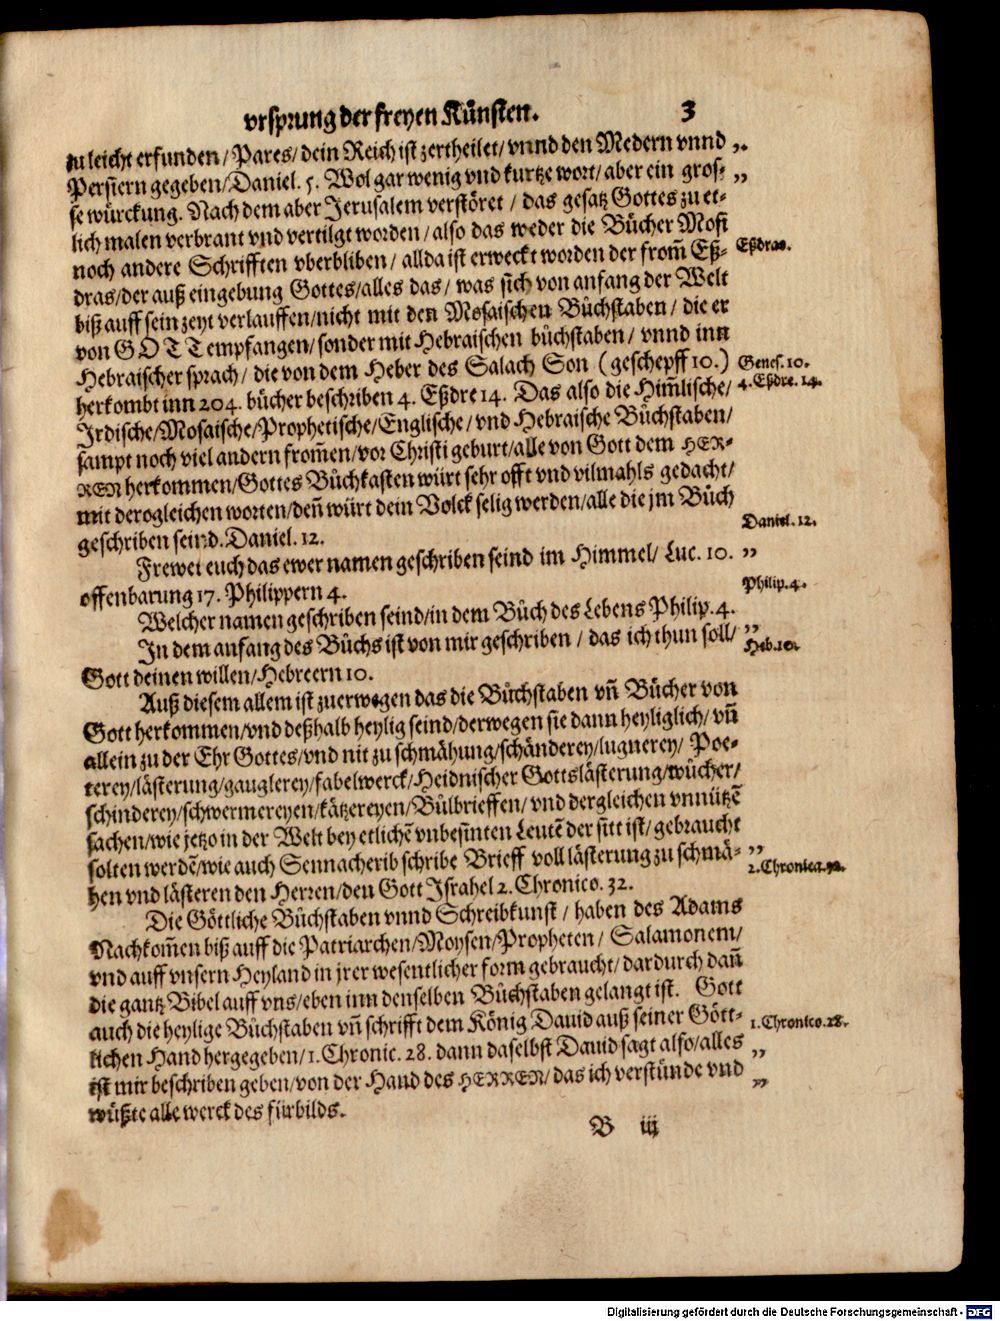 vrsprung der freyen Künsten. 3
zu leicht erfunden / Pares / dein Reich ist zertheilet / vnnd den Medern vnnd „
Persiern gegeben / Daniel. 5. Wol gar wenig vnd kurtze wort / aber ein gros⸗ „
se würckung. Nach dem aber Jerusalem verstöret / das gesatz Gottes zu et⸗
lich malen verbrant vnd vertilgt worden / also das weder die Bücher Mosi
noch andere Schrifften vberbliben / allda ist erweckt worden der from̃ Eß⸗ Eßdras.
dras / der auß eingebung Gottes / alles das / was sich von anfang der Welt
biß auff sein zeyt verlauffen / nicht mit den Mosaischen Büchstaben / die er
von GOTT empfangen / sonder mit Hebraischen büchstaben / vnnd inn
Hebraischer sprach / die von dem Heber des Salach Son (geschepff 10.) Genes. 10.
herkombt inn 204. bücher beschriben 4. Eßdre 14. Das also die Him̃lische / 4. Eßdre. 14.
Irdische / Mosaische / Prophetische / Englische / vnd Hebraische Büchstaben /
sampt noch viel andern from̃en / vor Christi geburt / alle von Gott dem HER⸗
REN herkommen / Gottes Büchkasten würt sehr offt vnd vilmahls gedacht /
mit derogleichen worten / deñ würt dein Volck selig werden / alle die jm Büch
geschriben seind. Daniel. 12. Daniel. 12.
Frewet euch das ewer namen geschriben seind im Himmel / Luc. 10. „
offenbarung 17. Philippern 4. Philip. 4.
Welcher namen geschriben seind / in dem Büch des Lebens Philip. 4.
In dem anfang des Büchs ist von mir geschriben / das ich thun soll / „
Gott deinen willen / Hebreern 10. Heb. 10.
Auß diesem allem ist zuerwegen das die Büchstaben vñ Bücher von
Gott herkommen / vnd deßhalb heylig seind / derwegen sie dann heyliglich / vñ
allein zu der Ehr Gottes / vnd nit zu schmähung / schänderey / lugnerey / Poe⸗
terey / lästerung / gauglerey / fabelwerck / Heidnischer Gottslästerung / wücher /
schinderey / schwermereyen / kätzereyen / Bülbrieffen / vnd dergleichen vnnützẽ
sachen / wie jetzo in der Welt bey etlichẽ vnbesinten Leutẽ der sitt ist / gebraucht
solten werdẽ / wie auch Sennacherib schribe Brieff voll lästerung zu schmä⸗ „
hen vnd lästeren den Herren / den Gott Israhel 2. Chronico. 32. 2. Chronica. 32.
Die Göttliche Büchstaben vnnd Schreibkunst / haben des Adams
Nachkom̃en biß auff die Patriarchen / Moysen / Propheten / Salamonem /
vnd auff vnsern Heyland in jrer wesentlicher form gebraucht / dardurch dañ
die gantz Bibel auff vns / eben inn denselben Büchstaben gelangt ist. Gott
auch die heylige Büchstaben vñ schrifft dem König Dauid auß seiner Gött⸗ 1. Chronico. 28.
lichen Hand hergegeben / 1. Chronic. 28. dann daselbst Dauid sagt also / alles „
ist mir beschriben geben / von der Hand des HERREN / das ich verstünde vnd „
wüßte alle werck des fürbilds.
B iij
Digitalisierung gefördert durch die Deutsche Forschungsgemeinschaft - DFG